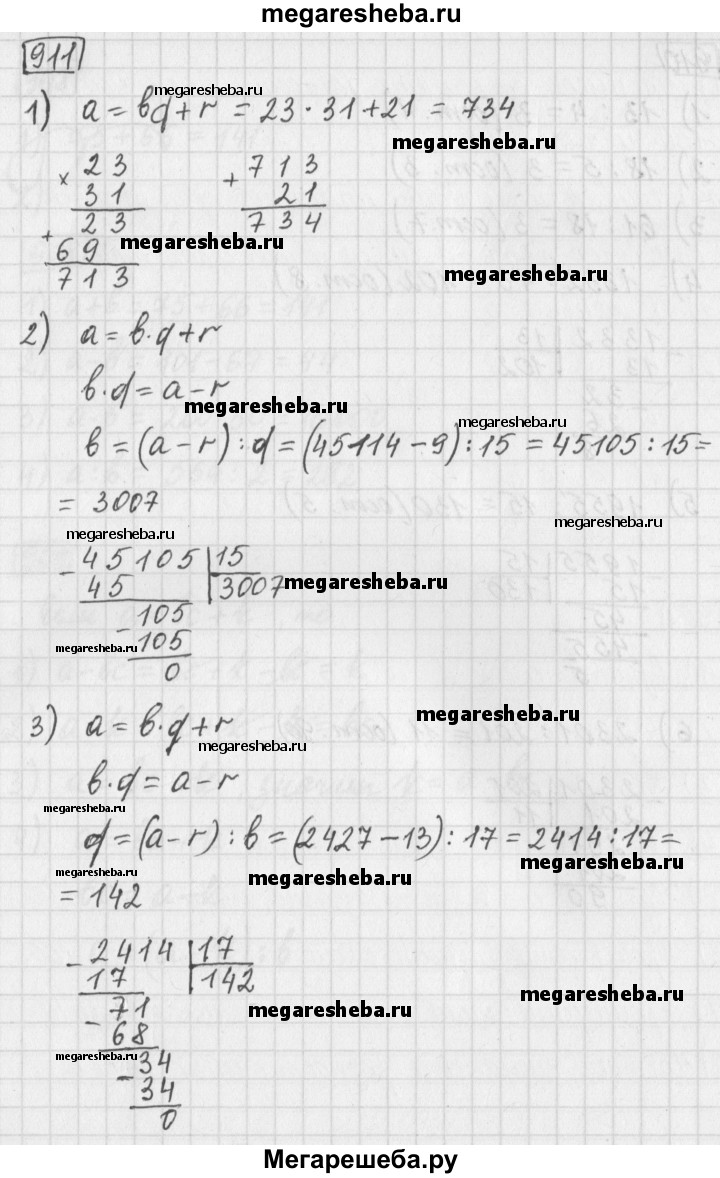 megaresheba.ru
911
megaresheba.ru
1) a = bq + r = 23 · 31 + 21 = 734
megaresheba.ru
× 23
31
23
+ 69
713
+ 713
21
734
megaresheba.ru
megaresheba.ru
2) a = b·q + r
b·q = a – r
megaresheba.ru
megaresheba.ru
b = (a – r) : q = (45114 – 9) : 15 = 45105 : 15 =
= 3007
megaresheba.ru
megaresheba.ru
- 45105 | 15
45 | 3007
megaresheba.ru
- 105
105
megaresheba.ru
0
3) a = b·q + r
megaresheba.ru
megaresheba.ru
b·q = a – r
megaresheba.ru
megaresheba.ru
q = (a – r) : b = (2427 – 13) : 17 = 2414 : 17 =
megaresheba.ru
megaresheba.ru
megaresheba.ru
= 142
- 2414 | 17
17 | 142
megaresheba.ru
- 71
megaresheba.ru
68
megaresheba.ru
- 34
34
0
Мегарешеба.ру